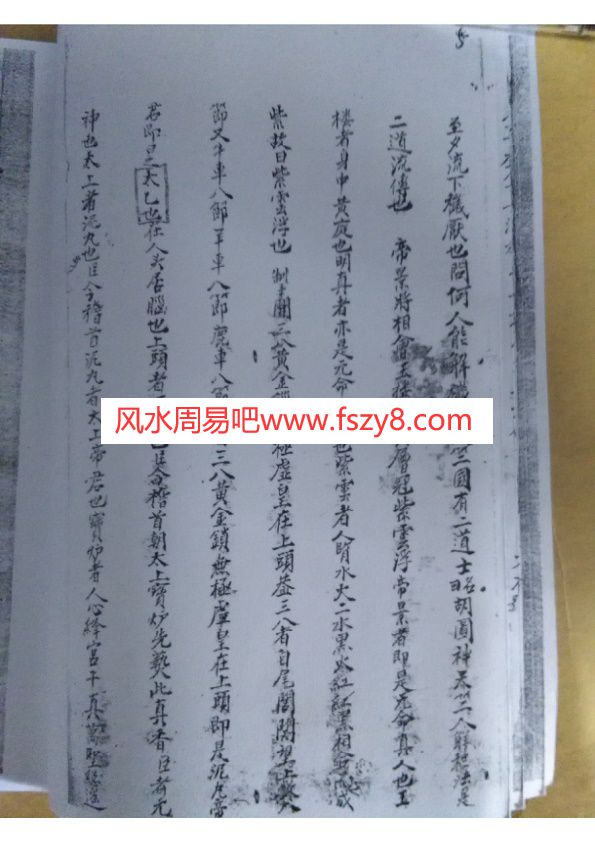 至夕流下機厭也問何人能解二國有二道士昭胡國神二人解
二道流傳也 帝景將相會玉層冠紫雲浮帝景者即是元命真人也玉
樓者身中黃庭也明真者亦是元命也紫雲者人腎水火二水黑火紅紅黑相成
紫故曰紫雲浮也 制開三八黃金極虛皇在上頭蓋三八者自尾閭關望上
節又牛車八節羊車八節鹿車八三八黃金鎖無極虛皇在上頭即是泥丸帝
君即是太乙也在人头居腦也上頭者臣今稽首朝太上寶炉先爇此真香臣者元
神也太上者泥丸也臣今稽首泥丸者太上帝君也寶炉者人心絳宮千真萬聖
风水周易吧www.fszy8.com